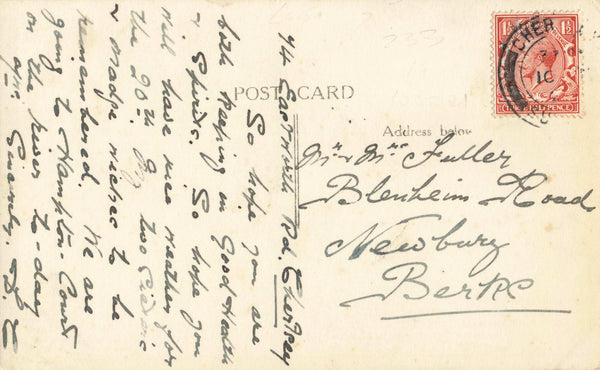 POST CARD
Address below
Mr & Mrs Fuller
Blenheim Road
Newbury
Berks
94 Eastworth Rd. Chertsey
So hope you are
both keeping in Good Health
& Spirits. So hope you
will have nice weather for
the 20th. My two
& Madge wishes to be
remembered. We are
going to Hampton-Court
on the river to-day
Sincerely
CHER
1½
1½